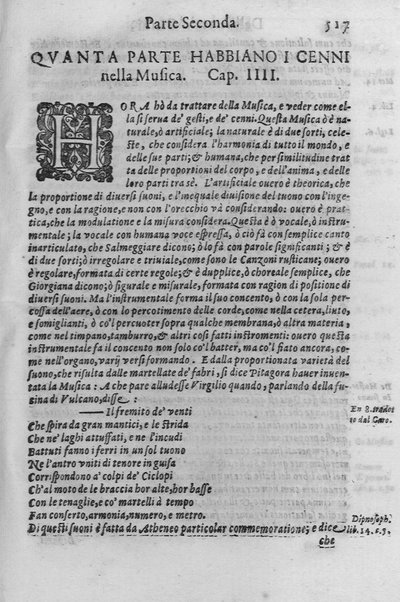 Parte Seconda. 517
QVANTA PARTE HABBIANO I CENNI
nella Musica. Cap. IIII.
HORA hò da trattare della Musica, e veder come el-
la si serua de' gesti, e de' cenni. Questa Musica ò è na-
turale, ò artificiale; la naturale è di due sorti, cele-
ste, che considera l'harmonia di tutto il mondo, e
delle sue parti; & humana, che per similitudine trat
ta delle proportioni del corpo, e dell'anima, e delle
loro parti tra sè. L'artificiale ouero è theorica, che
la proportione di diuersi suoni, e l'inequale diuisione del tuono con l'inge-
gno, e con la ragione, e non con l'orecchio và considerando: ouero è prat-
tica, che la modulatione e la misura considera. Questa è ò vocale, ò instru-
mentale; la vocale con humana voce espressa, ò ciò fà con semplice canto
inarticulato, che Salmeggiare dicono; ò lo fà con parole significanti; & è
di due sorti; ò irregolare e triuiale, come sono le Canzoni rusticane; ouero
è regolare, formata di certe regole; & è dupplice, ò choreale semplice, che
Giorgiana dicono; ò figurale e misurale, formata con ragion di positione di
diuersi suoni. Ma l'instrumentale forma il suo concento, ò con la sola per-
cossa dell'aere, ò con lo percotimento delle corde, come nella cetera, liuto,
e somiglianti, ò co'l percuoter sopra qualche membrana, ò altra materia,
come nel timpano, tamburro, & altri cosi fatti instromenti: ouero questa
instrumentale fà il concento non solo co'l batter, ma co'l fiato ancora, co-
me nell'organo, varij versi formado. E dalla proportionata varietà del
suono, che risulta dalle martellate de' fabri, si dice Pitagora hauer inuen-
tata la Musica: A che pare alludesse Virgilio quando, parlando della fu-
sina di Vulcano, disse:
—— Il fremito de' venti
En 8. trados
Che spira da gran mantici, e le strida
to dal Caro.
Che ne' laghi attuffati, e ne l'incudi
Battuti fanno i ferri in un sol tuono
Ne l'antro vniti di tenore in guisa
Corrispondono a' colpi de' Ciclopi
Ch'al moto de le braccia hor alte, hor basse
Con le tenaglie, e co' martelli à tempo
Fan conserto, armonia, numero, e metro.
Di questi suoni è fatta da Atheneo particolar commemoratione; e dice
Dipnosoph.
lib. 14. c. 3.
che